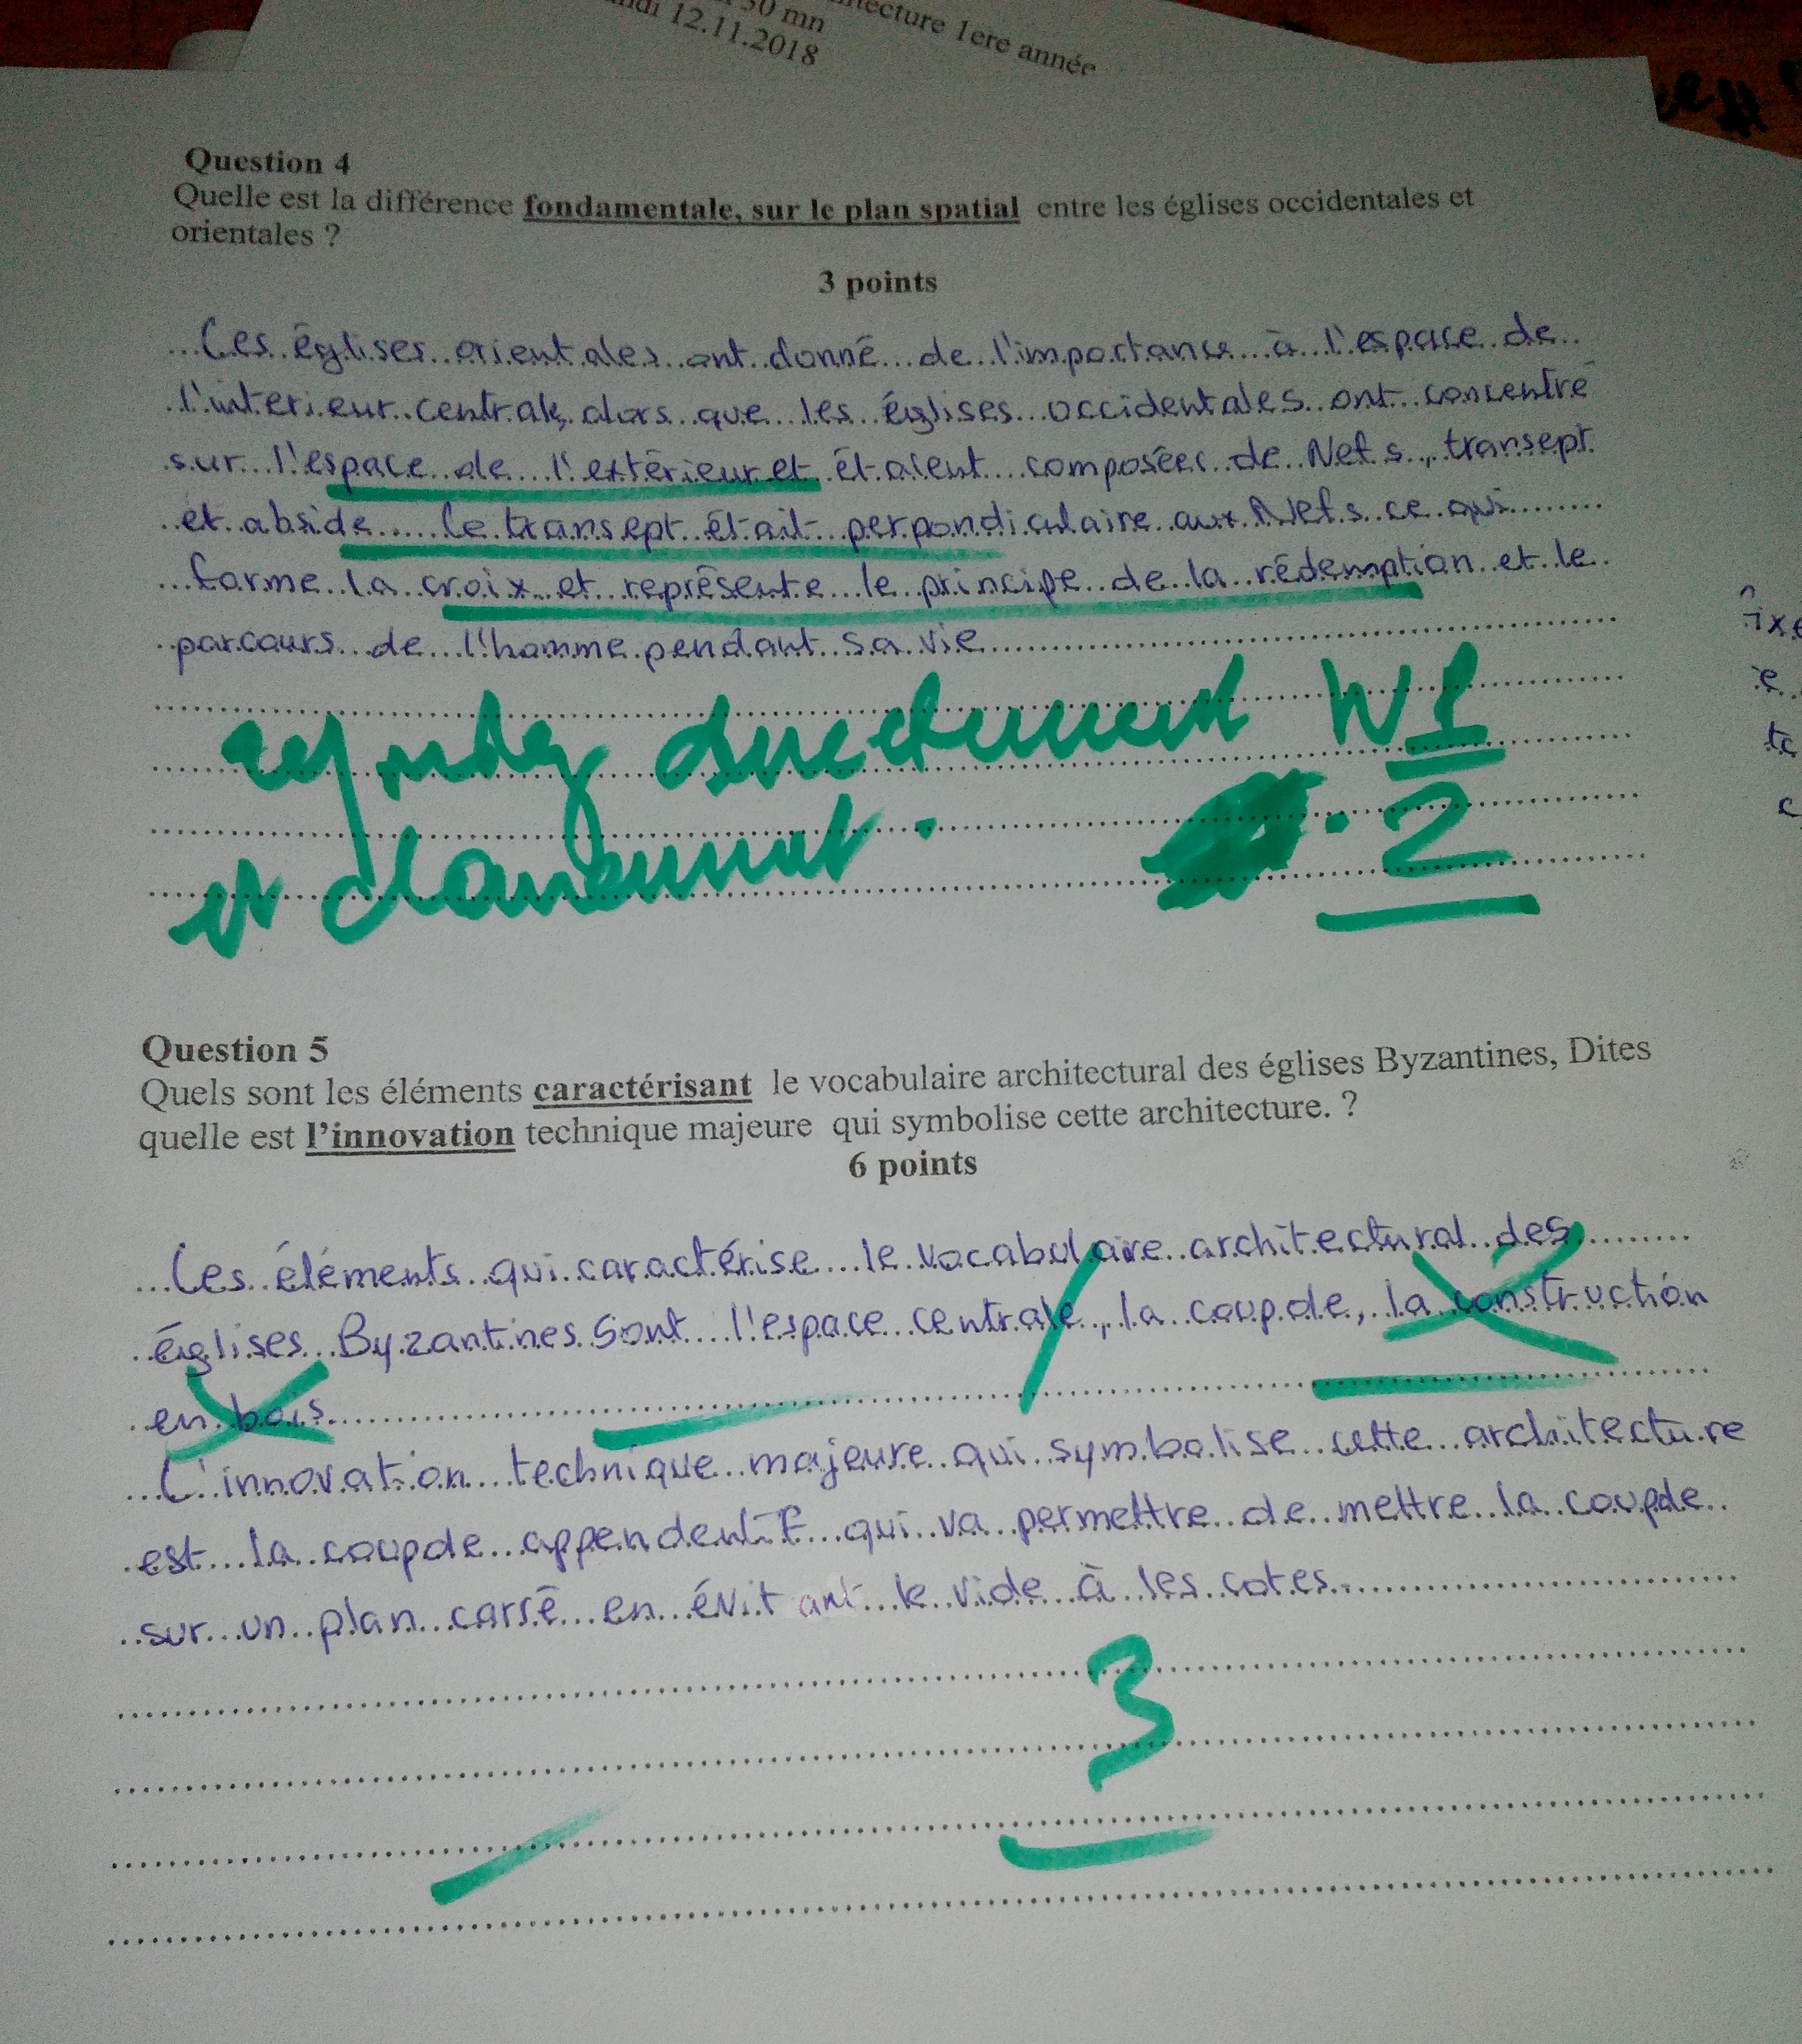 30 mn
12.11.2018
ecture 1ere année
Question 4
Quelle est la différence fondamentale, sur le plan spatial entre les églises occidentales et
orientales ?
3 points
Les églises orientales ont donné de l'importance à l'espace de
l'interieur centrale, alors que les églises occidentales ont concentré
sur l'espace de l'extérieur et étaient composées de Nefs, transept
et abside. Le transept était perpondiculaire aux Nefs ce qui
forme la croix et représente le principe de la rédemption et le
parcours de l'homme pendant sa vie
repondez directement
et clairement.
2
Question 5
Quels sont les éléments caractérisant le vocabulaire architectural des églises Byzantines, Dites
quelle est l'innovation technique majeure qui symbolise cette architecture. ?
6 points
Les éléments qui caractérise le vocabulaire architectural des
églises Byzantines sont l'espace centrale, la coupole, la construction
en bois
L'innovation technique majeure qui symbolise cette architecture
est la coupole appendentif qui va permettre de mettre la coupole
sur un plan carré en évitant le vide à les cotes
3